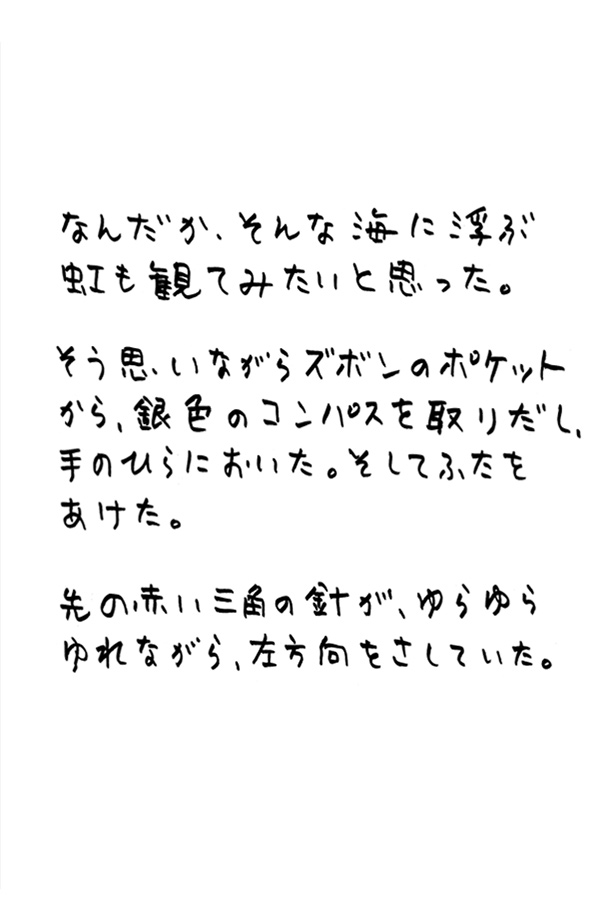 なんだか、そんな海に浮ぶ
虹も観てみたいと思った。
そう思いながらズボンのポケット
から、銀色のコンパスを取りだし、
手のひらにおいた。そしてふたを
あけた。
先の赤い三角の針が、ゆらゆら
ゆれながら、左方向をさしていた。